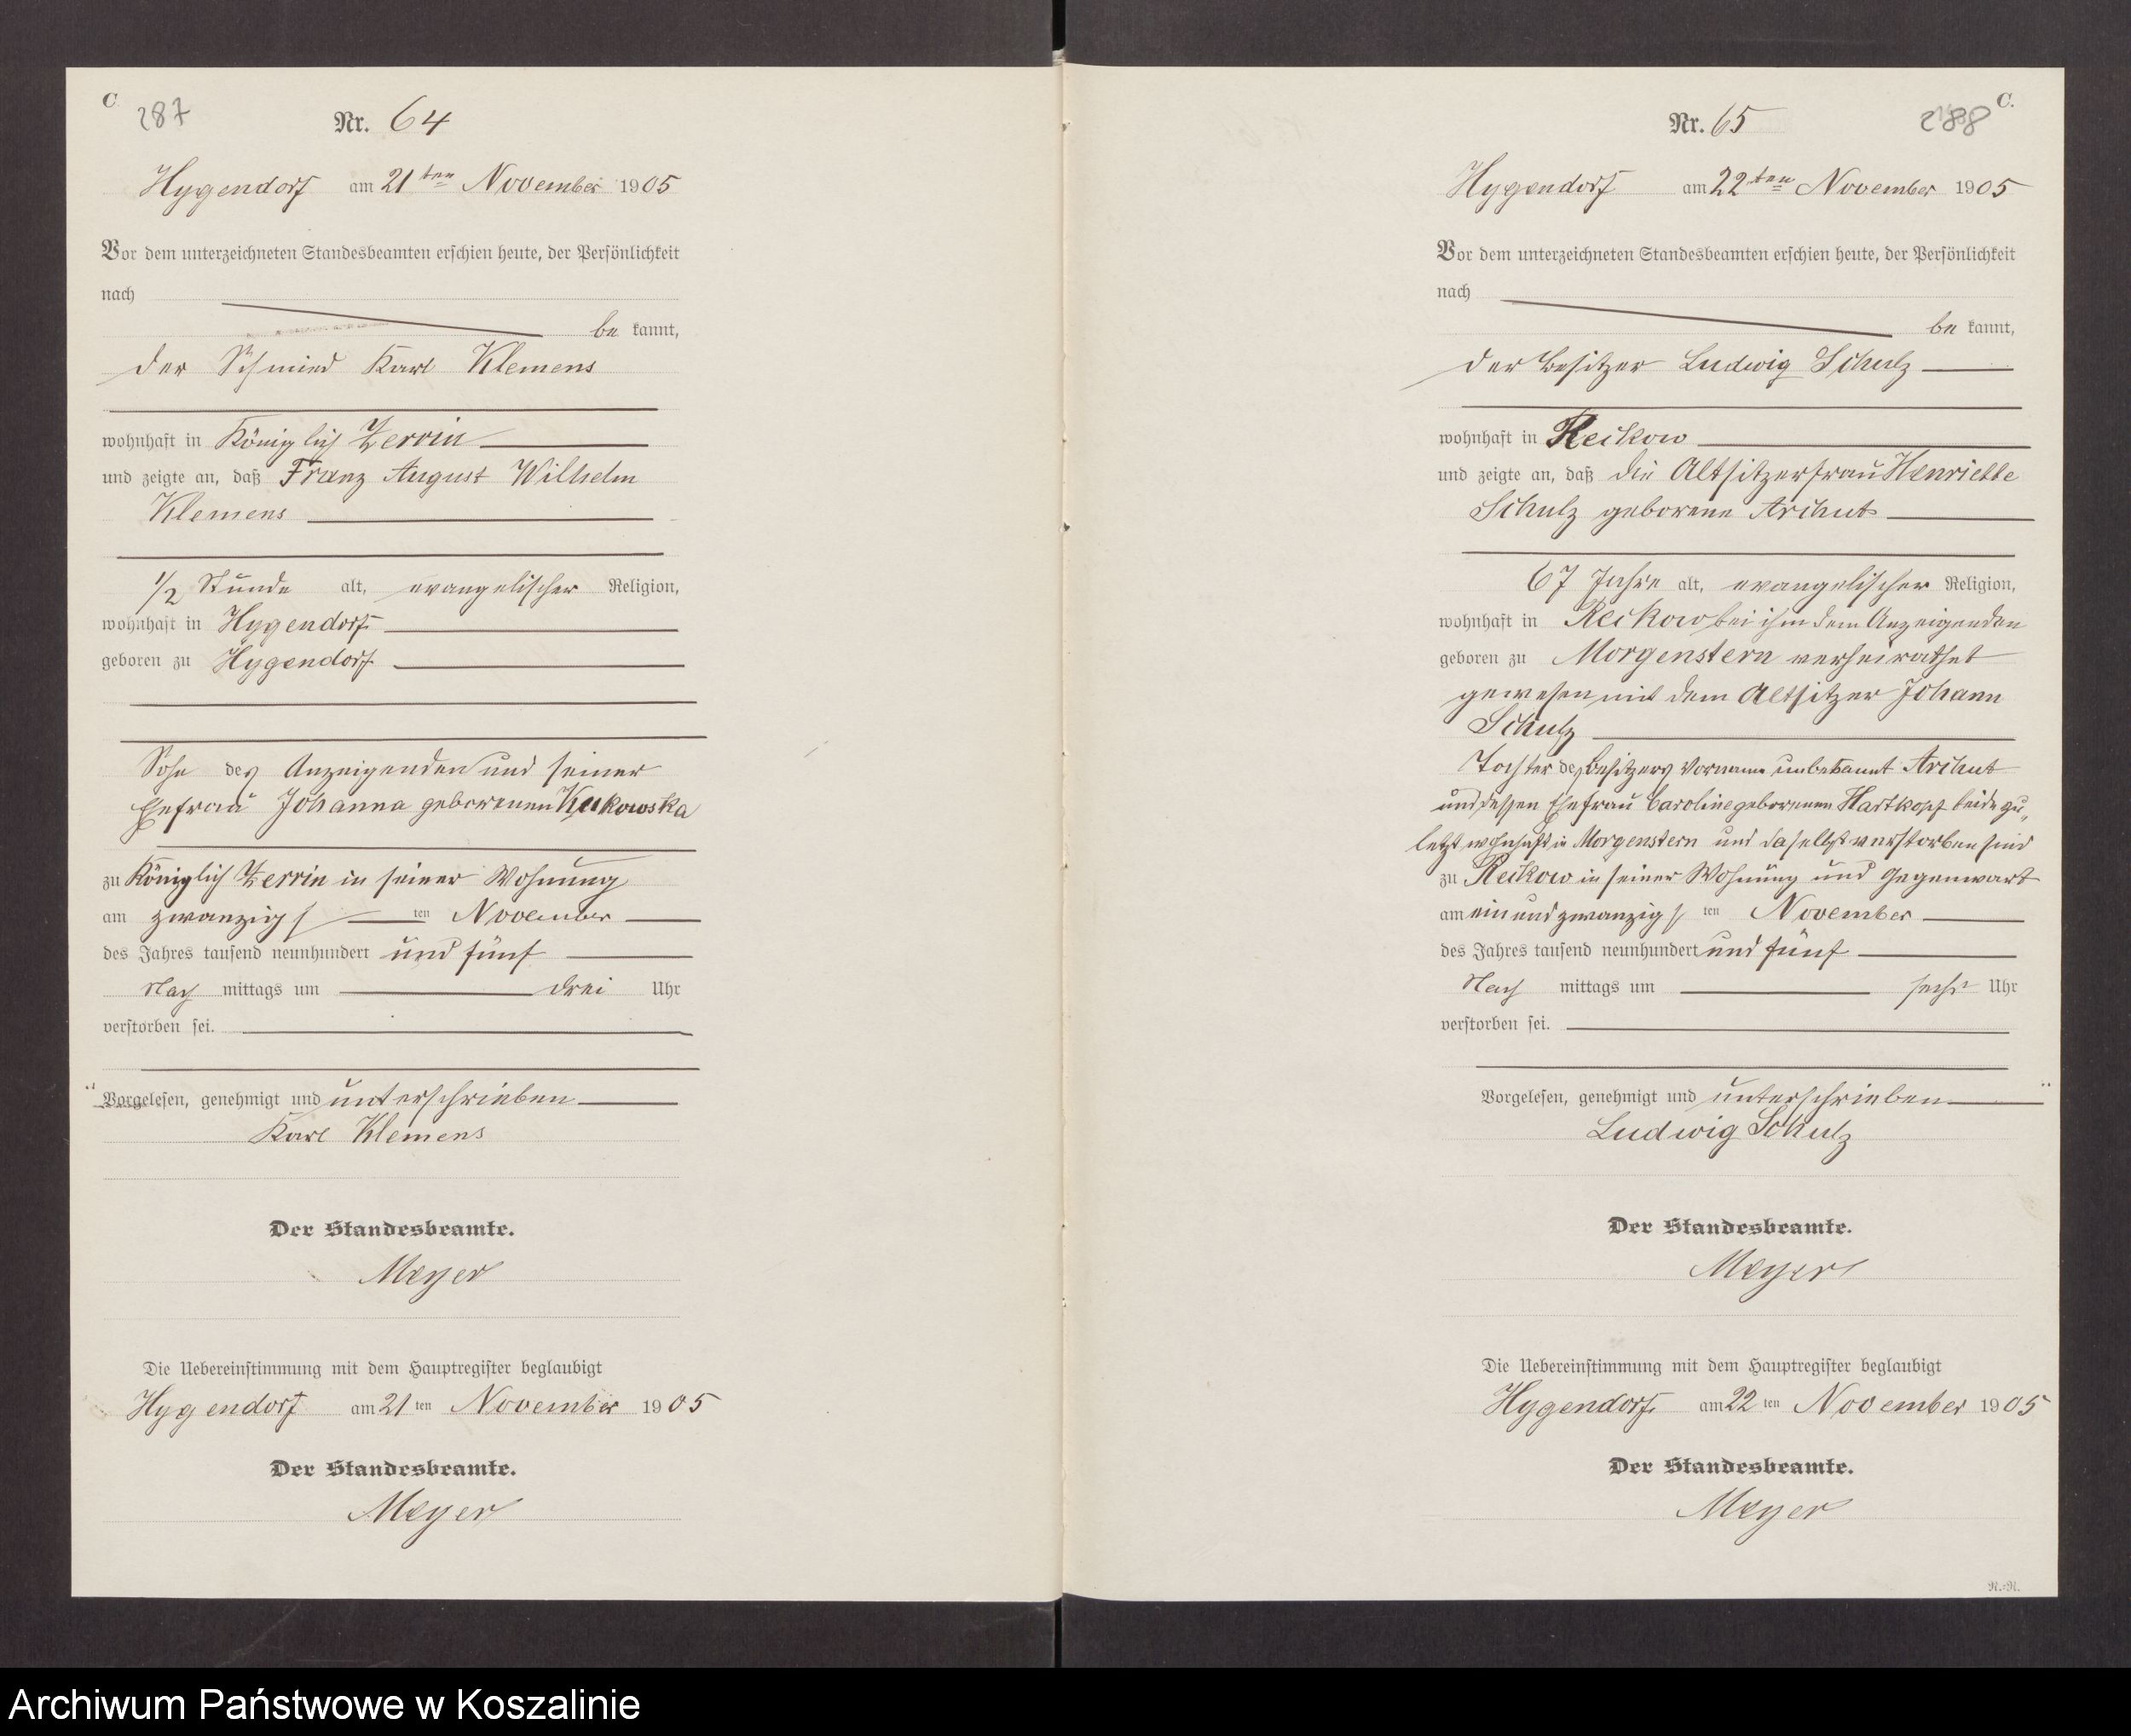 C
287
Nr. 64
Hygendorf am 21ten November 1905
Vor dem unterzeichneten Standesbeamten erschien heute, der Persönlichkeit
nach
be kannt,
der Schmied Karl Klemens
wohnhaft in Königlich Zerrin
und zeigte an, daß Franz August Wilhelm
Klemens
1/2 Stunde alt, evangelischer Religion,
wohnhaft in Hygendorf
geboren zu Hygendorf
Sohn des Anzeigenden und seiner
Ehefrau Johanna geborenen Kukowska
zu Königlich Zerrin in seiner Wohnung
am zwanzigs ten November
des Jahres tausend neunhundert und fünf
Nach mittags um drei Uhr
verstorben sei.
Vorgelesen, genehmigt und unterschrieben
Karl Klemens
Der Standesbeamte.
Meyer
Die Uebereinstimmung mit dem Hauptregister beglaubigt
Hygendorf am 21 ten November 1905
Der Standesbeamte.
Meyer
C.
288
Nr. 65
Hygendorf am 22ten November 1905
Vor dem unterzeichneten Standesbeamten erschien heute, der Persönlichkeit
nach
be kannt,
der Besitzer Ludwig Schulz
wohnhaft in Reikow
und zeigte an, daß die Altsitzerfrau Henriette
Schulz geborene Archut
67 Jahre alt, evangelischer Religion,
wohnhaft in Reikow bei ihm dem Anzeigenden
geboren zu Morgenstern verheirathet
gewesen mit dem Altsitzer Johann
Schulz
Tochter des Besitzers Vorname unbekannt Archut
und dessen Ehefrau Caroline geborenen Hartkopf beide zu„
letzt wohnhaft in Morgenstern und daselbst verstorben sind
zu Reikow in seiner Wohnung und Gegenwart
am ein und zwanzigs ten November
des Jahres tausend neunhundert und fünf
Nach mittags um sechs Uhr
verstorben sei.
Vorgelesen, genehmigt und unterschrieben
Ludwig Schulz
Der Standesbeamte.
Meyer
Die Uebereinstimmung mit dem Hauptregister beglaubigt
Hygendorf am 22 ten November 1905
Der Standesbeamte.
Meyer
N.=N.
Archiwum Państwowe w Koszalinie